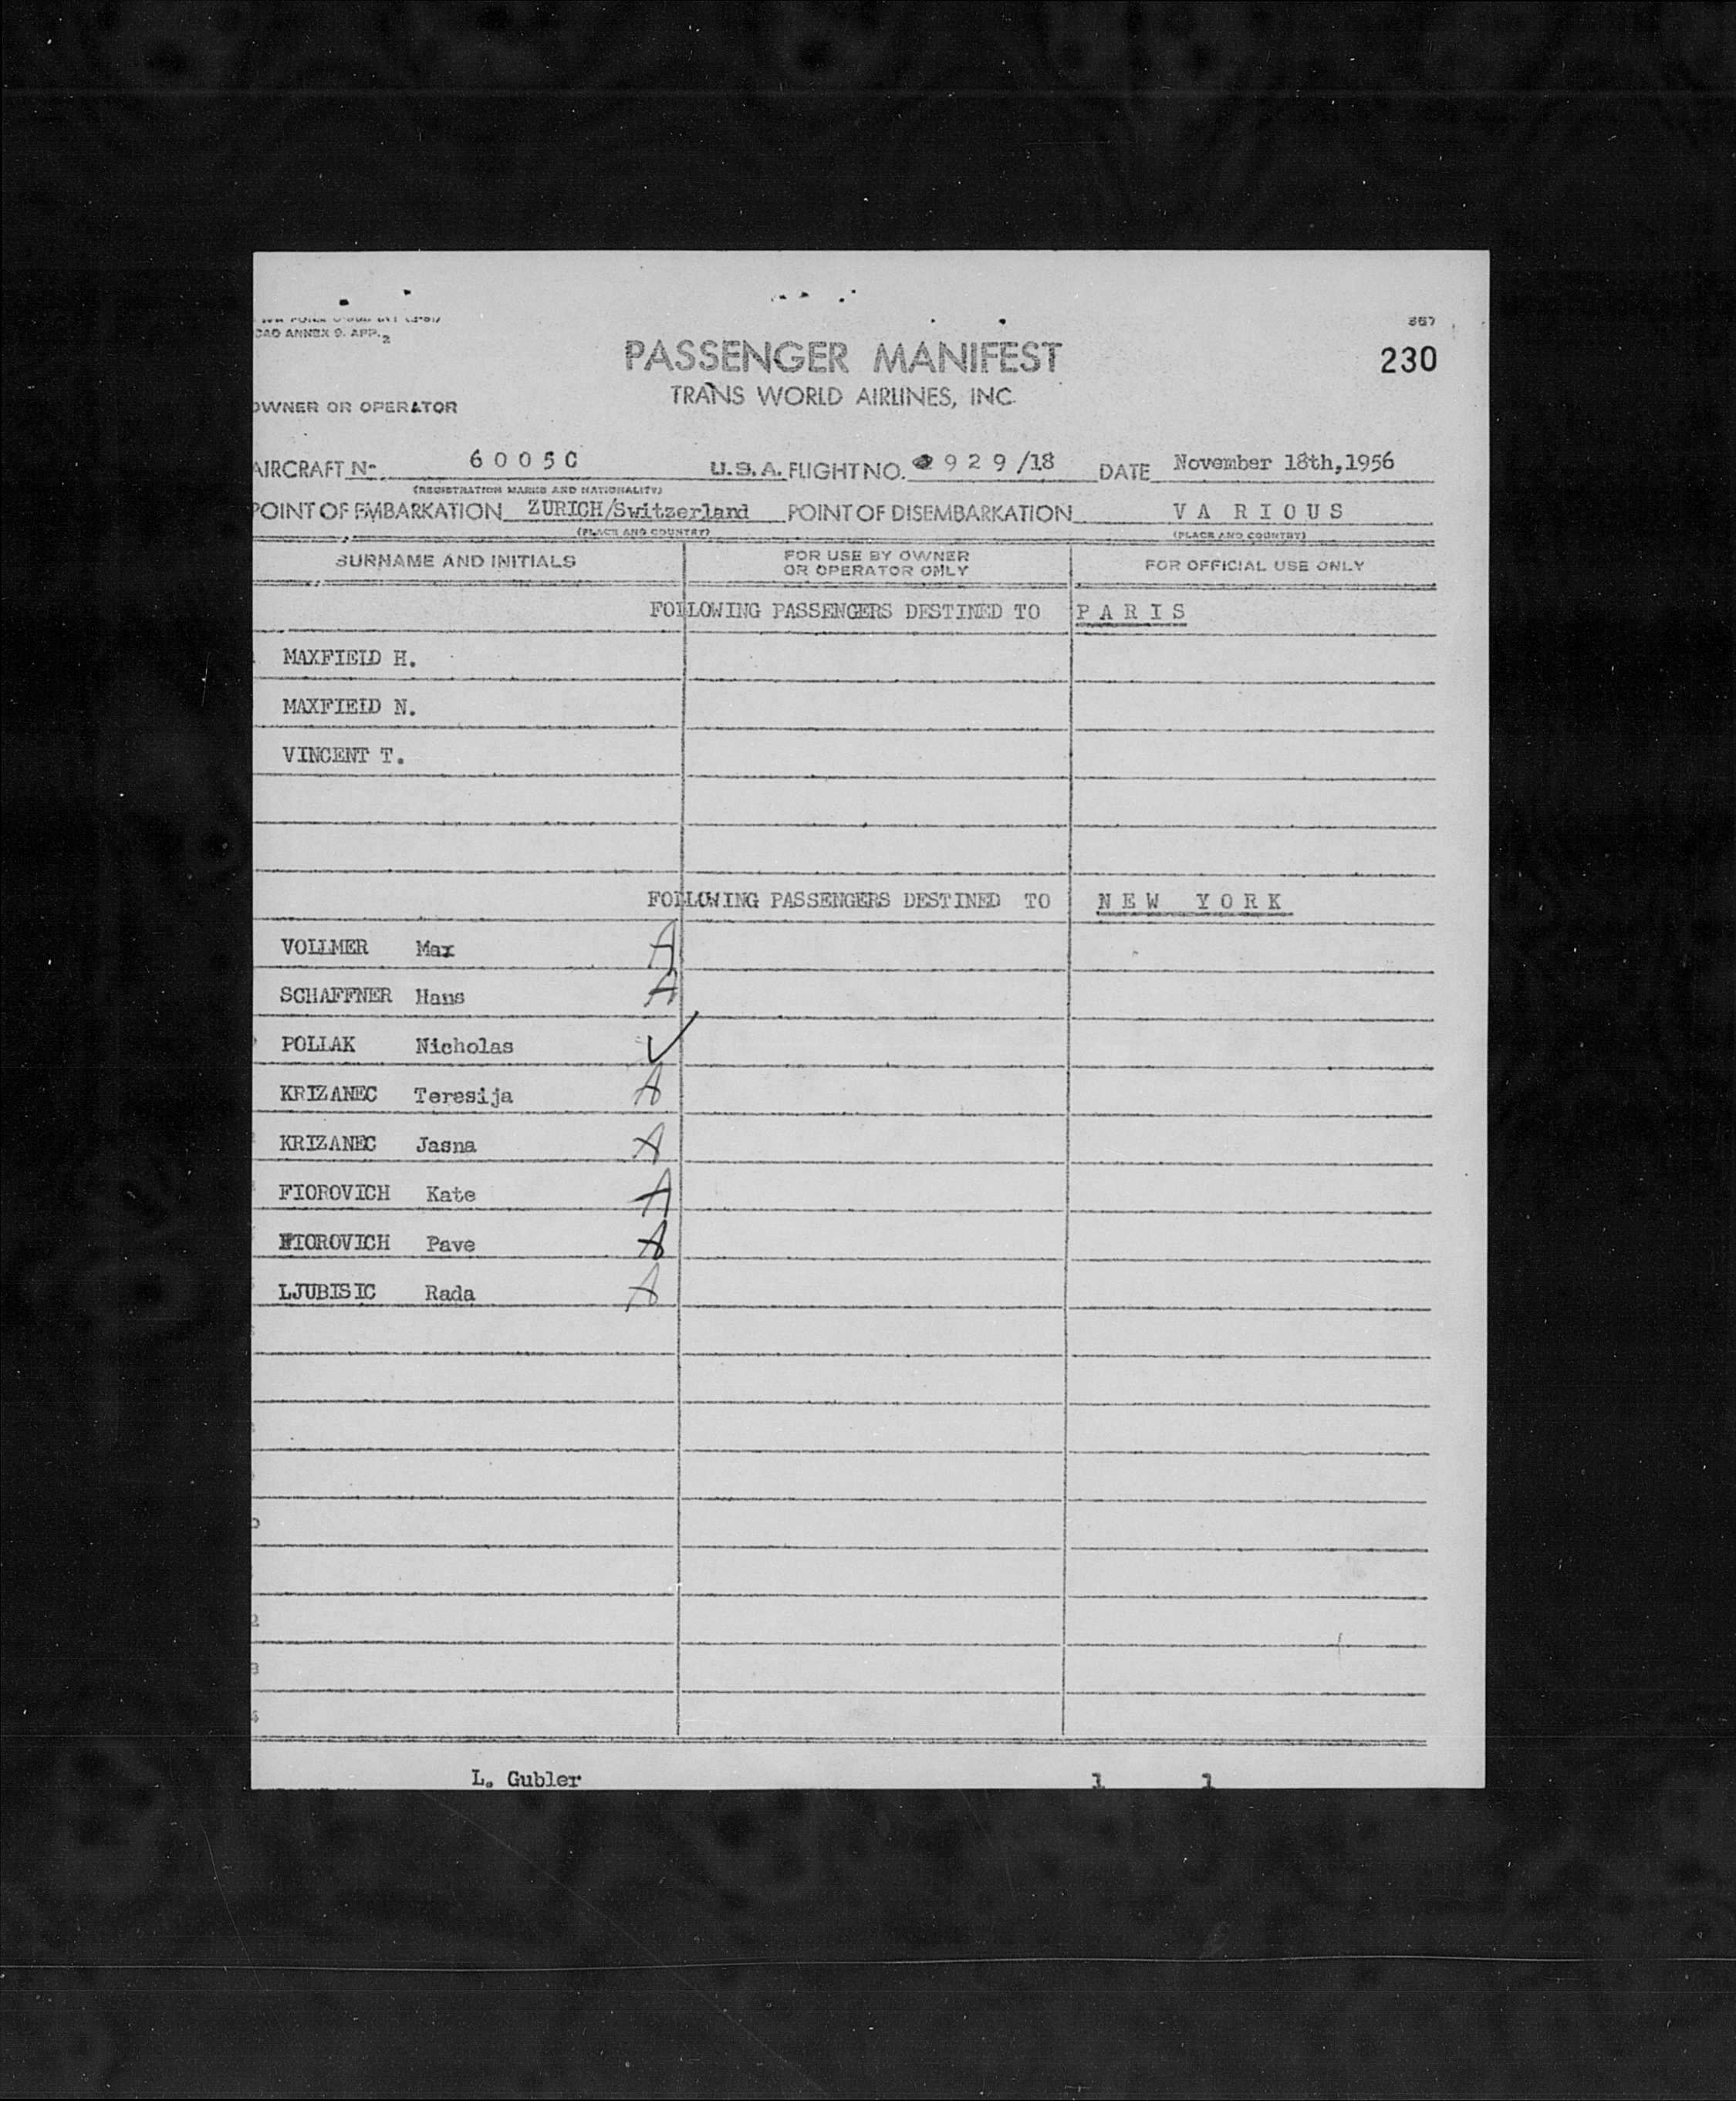 CAO ANNEX 9. APP. 2
867
PASSENGER MANIFEST
230
TRANS WORLD AIRLINES, INC.
OWNER OR OPERATOR
AIRCRAFT No. 6005C U.S.A. FLIGHT NO. 929/18 DATE November 18th,1956
(REGISTRATION MARKS AND NATIONALITY)
POINT OF EMBARKATION ZURICH/Switzerland POINT OF DISEMBARKATION VARIOUS
(PLACE AND COUNTRY) (PLACE AND COUNTRY)
SURNAME AND INITIALS FOR USE BY OWNER OR OPERATOR ONLY FOR OFFICIAL USE ONLY
FOLLOWING PASSENGERS DESTINED TO PARIS
MAXFIELD H.
MAXFIELD N.
VINCENT T.
FOLLOWING PASSENGERS DESTINED TO NEW YORK
VOLLMER Max A
SCHAFFNER Hans A
POLLAK Nicholas ✓
KRIZANEC Teresija A
KRIZANEC Jasna A
FIOROVICH Kate A
FIOROVICH Pave A
LJUBISIC Rada A
L. Gubler 1 1